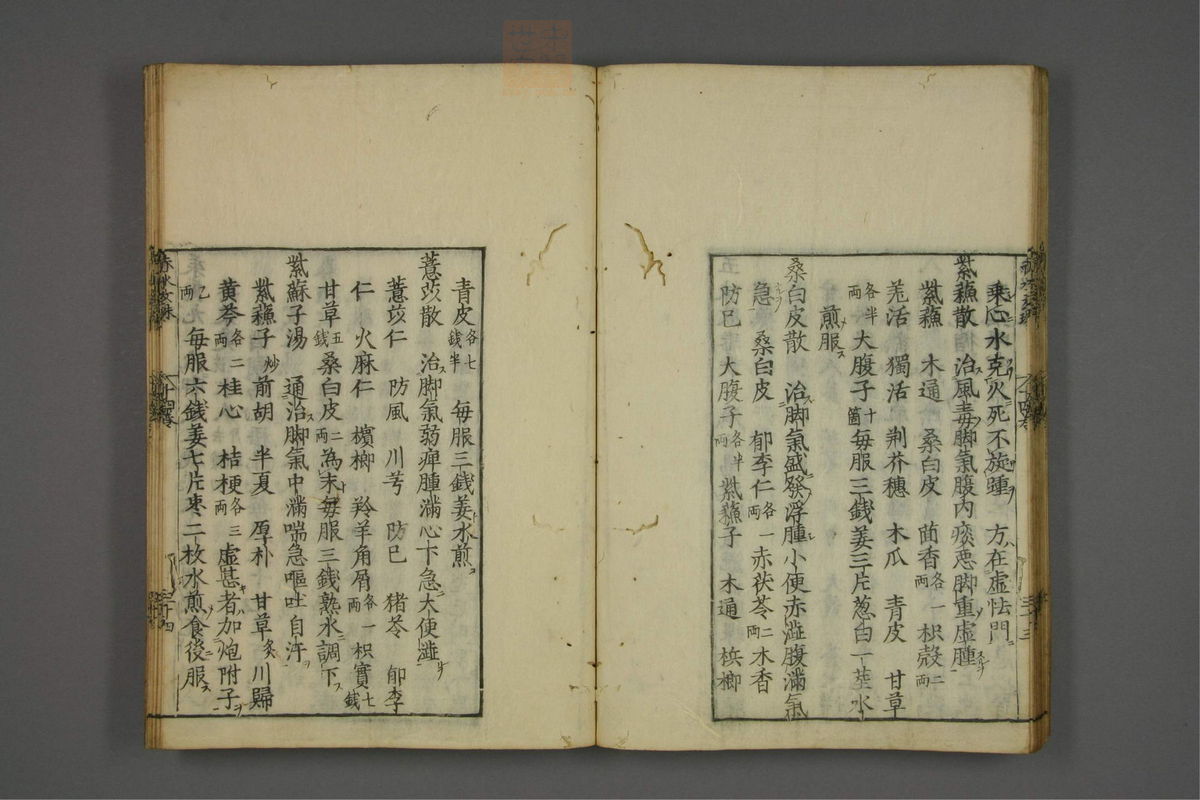 乗心水克火死不旋踵 方在虚怯門
紫蘓散 治風毒脚氣腹内痰悪脚重虚腫
紫蘓 木通 桑白皮 茴香各一両 枳殻二両
羌活 獨活 荆芥穗 木瓜 青皮 甘草
各半両 大腹子十箇 毎服三錢姜三片葱白一茎水
煎服
桑白皮散 治脚氣盛發浮腫小便赤澁腹滿氣
急 桑白皮 郁李仁各一両 赤茯苓二両 木香
防巳 大腹子各半両 紫蘓子 木通 梹榔
青皮各七錢半 毎服三錢姜水煎
薏苡散 治脚氣弱痺腫滿心下急大便澁
薏苡仁 防風 川芎 防巳 猪苓 郁李
仁 火麻仁 檳榔 羚羊角屑各一両 枳實七錢
甘草五錢 桑白皮二両 為末毎服三錢熟水調下
紫蘇子湯 通治脚氣中滿喘急嘔吐自汗
紫蘓子炒 前胡 半夏 厚朴 甘草炙 川歸
黄芩各二両 桂心 桔梗各三両 虚甚者加炮附子
乙両 毎服六錢姜七片枣二枚水煎食後服